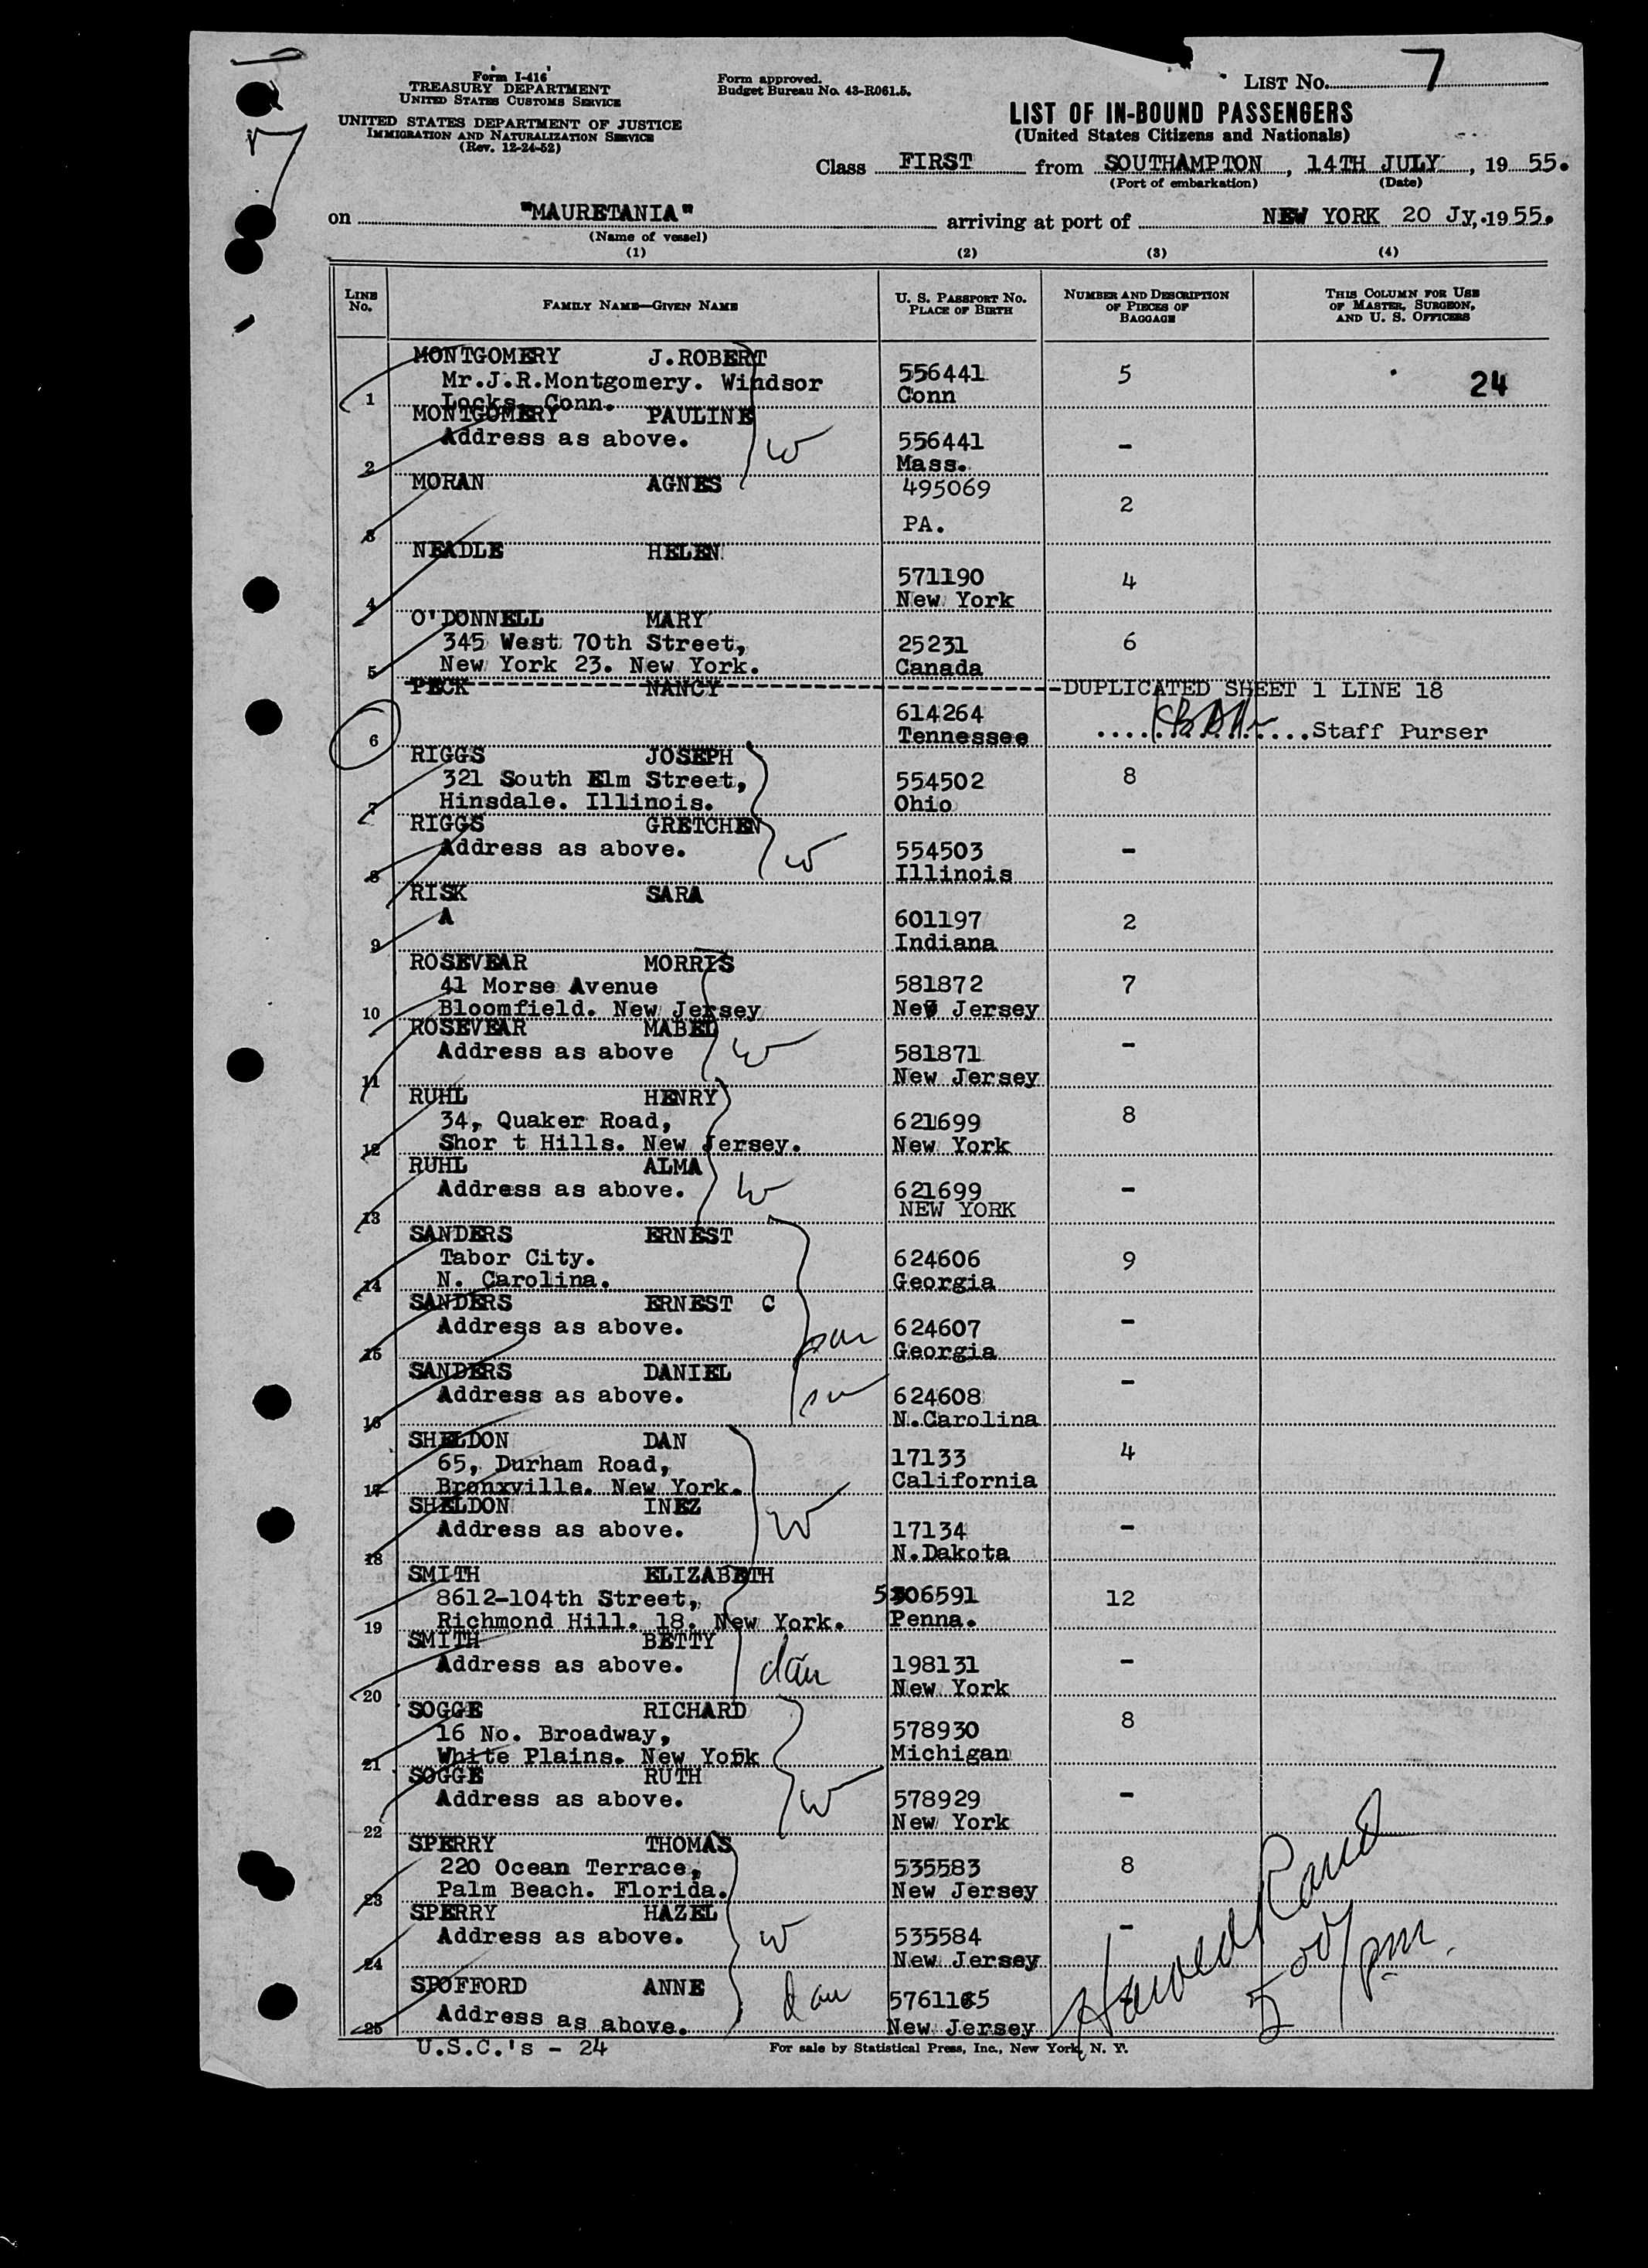 Form I-416
TREASURY DEPARTMENT
UNITED STATES CUSTOMS SERVICE
UNITED STATES DEPARTMENT OF JUSTICE
IMMIGRATION AND NATURALIZATION SERVICE
(Rev. 12-24-52)
Form approved.
Budget Bureau No. 43-R061.5.
LIST NO. 7
7
LIST OF IN-BOUND PASSENGERS
(United States Citizens and Nationals)
Class FIRST from SOUTHAMPTON, 14TH JULY, 19 55.
(Port of embarkation) (Date)
on "MAURETANIA" arriving at port of NEW YORK 20 Jy. 19 55.
(Name of vessel)
(1) (2) (3) (4)
LINE No. FAMILY NAME—GIVEN NAME U. S. PASSPORT NO. PLACE OF BIRTH NUMBER AND DESCRIPTION OF PIECES OF BAGGAGE THIS COLUMN FOR USE OF MASTER, SURGEON, AND U. S. OFFICERS
MONTGOMERY J.ROBERT
Mr.J.R.Montgomery. Windsor 556441 5 24
1 Locks. Conn. Conn
MONTGOMERY PAULINE
Address as above. W 556441 -
2 Mass.
MORAN AGNES 495069
2
3 PA.
NEADLE HELEN
571190 4
4 New York
O'DONNELL MARY
345 West 70th Street, 25231 6
5 New York 23. New York. Canada
PECK NANCY DUPLICATED SHEET 1 LINE 18
614264
6 Tennessee Staff Purser
RIGGS JOSEPH
321 South Elm Street, 554502 8
7 Hinsdale. Illinois. Ohio
RIGGS GRETCHEN
Address as above. W 554503 -
8 Illinois
RISK SARA
A 601197 2
9 Indiana
ROSEVEAR MORRIS
41 Morse Avenue 581872 7
10 Bloomfield. New Jersey New Jersey
ROSEVEAR MABEL
Address as above W 581871 -
11 New Jersey
RUHL HENRY
34, Quaker Road, 621699 8
12 Shor t Hills. New Jersey. New York
RUHL ALMA
Address as above. W 621699 -
13 NEW YORK
SANDERS ERNEST
Tabor City. 624606 9
14 N. Carolina. Georgia
SANDERS ERNEST C
Address as above. 624607 -
15 Georgia
SANDERS DANIEL
Address as above. 624608 -
16 N.Carolina
SHELDON DAN
65, Durham Road, 17133 4
17 Bronxville. New York. California
SHELDON INEZ
Address as above. W 17134 -
18 N.Dakota
SMITH ELIZABETH
8612-104th Street, 506591 12
19 Richmond Hill. 18. New York. Penna.
SMITH BETTY
Address as above. dau 198131 -
20 New York
SOGGE RICHARD
16 No. Broadway, 578930 8
21 White Plains. New York Michigan
SOGGE RUTH
Address as above. W 578929 -
22 New York
SPERRY THOMAS
220 Ocean Terrace, 535583 8
23 Palm Beach. Florida. New Jersey
SPERRY HAZEL
Address as above. W 535584 -
24 New Jersey
SPOFFORD ANNE dau
Address as above.
25 New Jersey
5 00/pm.
U.S.C.'s - 24 For sale by Statistical Press, Inc., New York, N. Y.